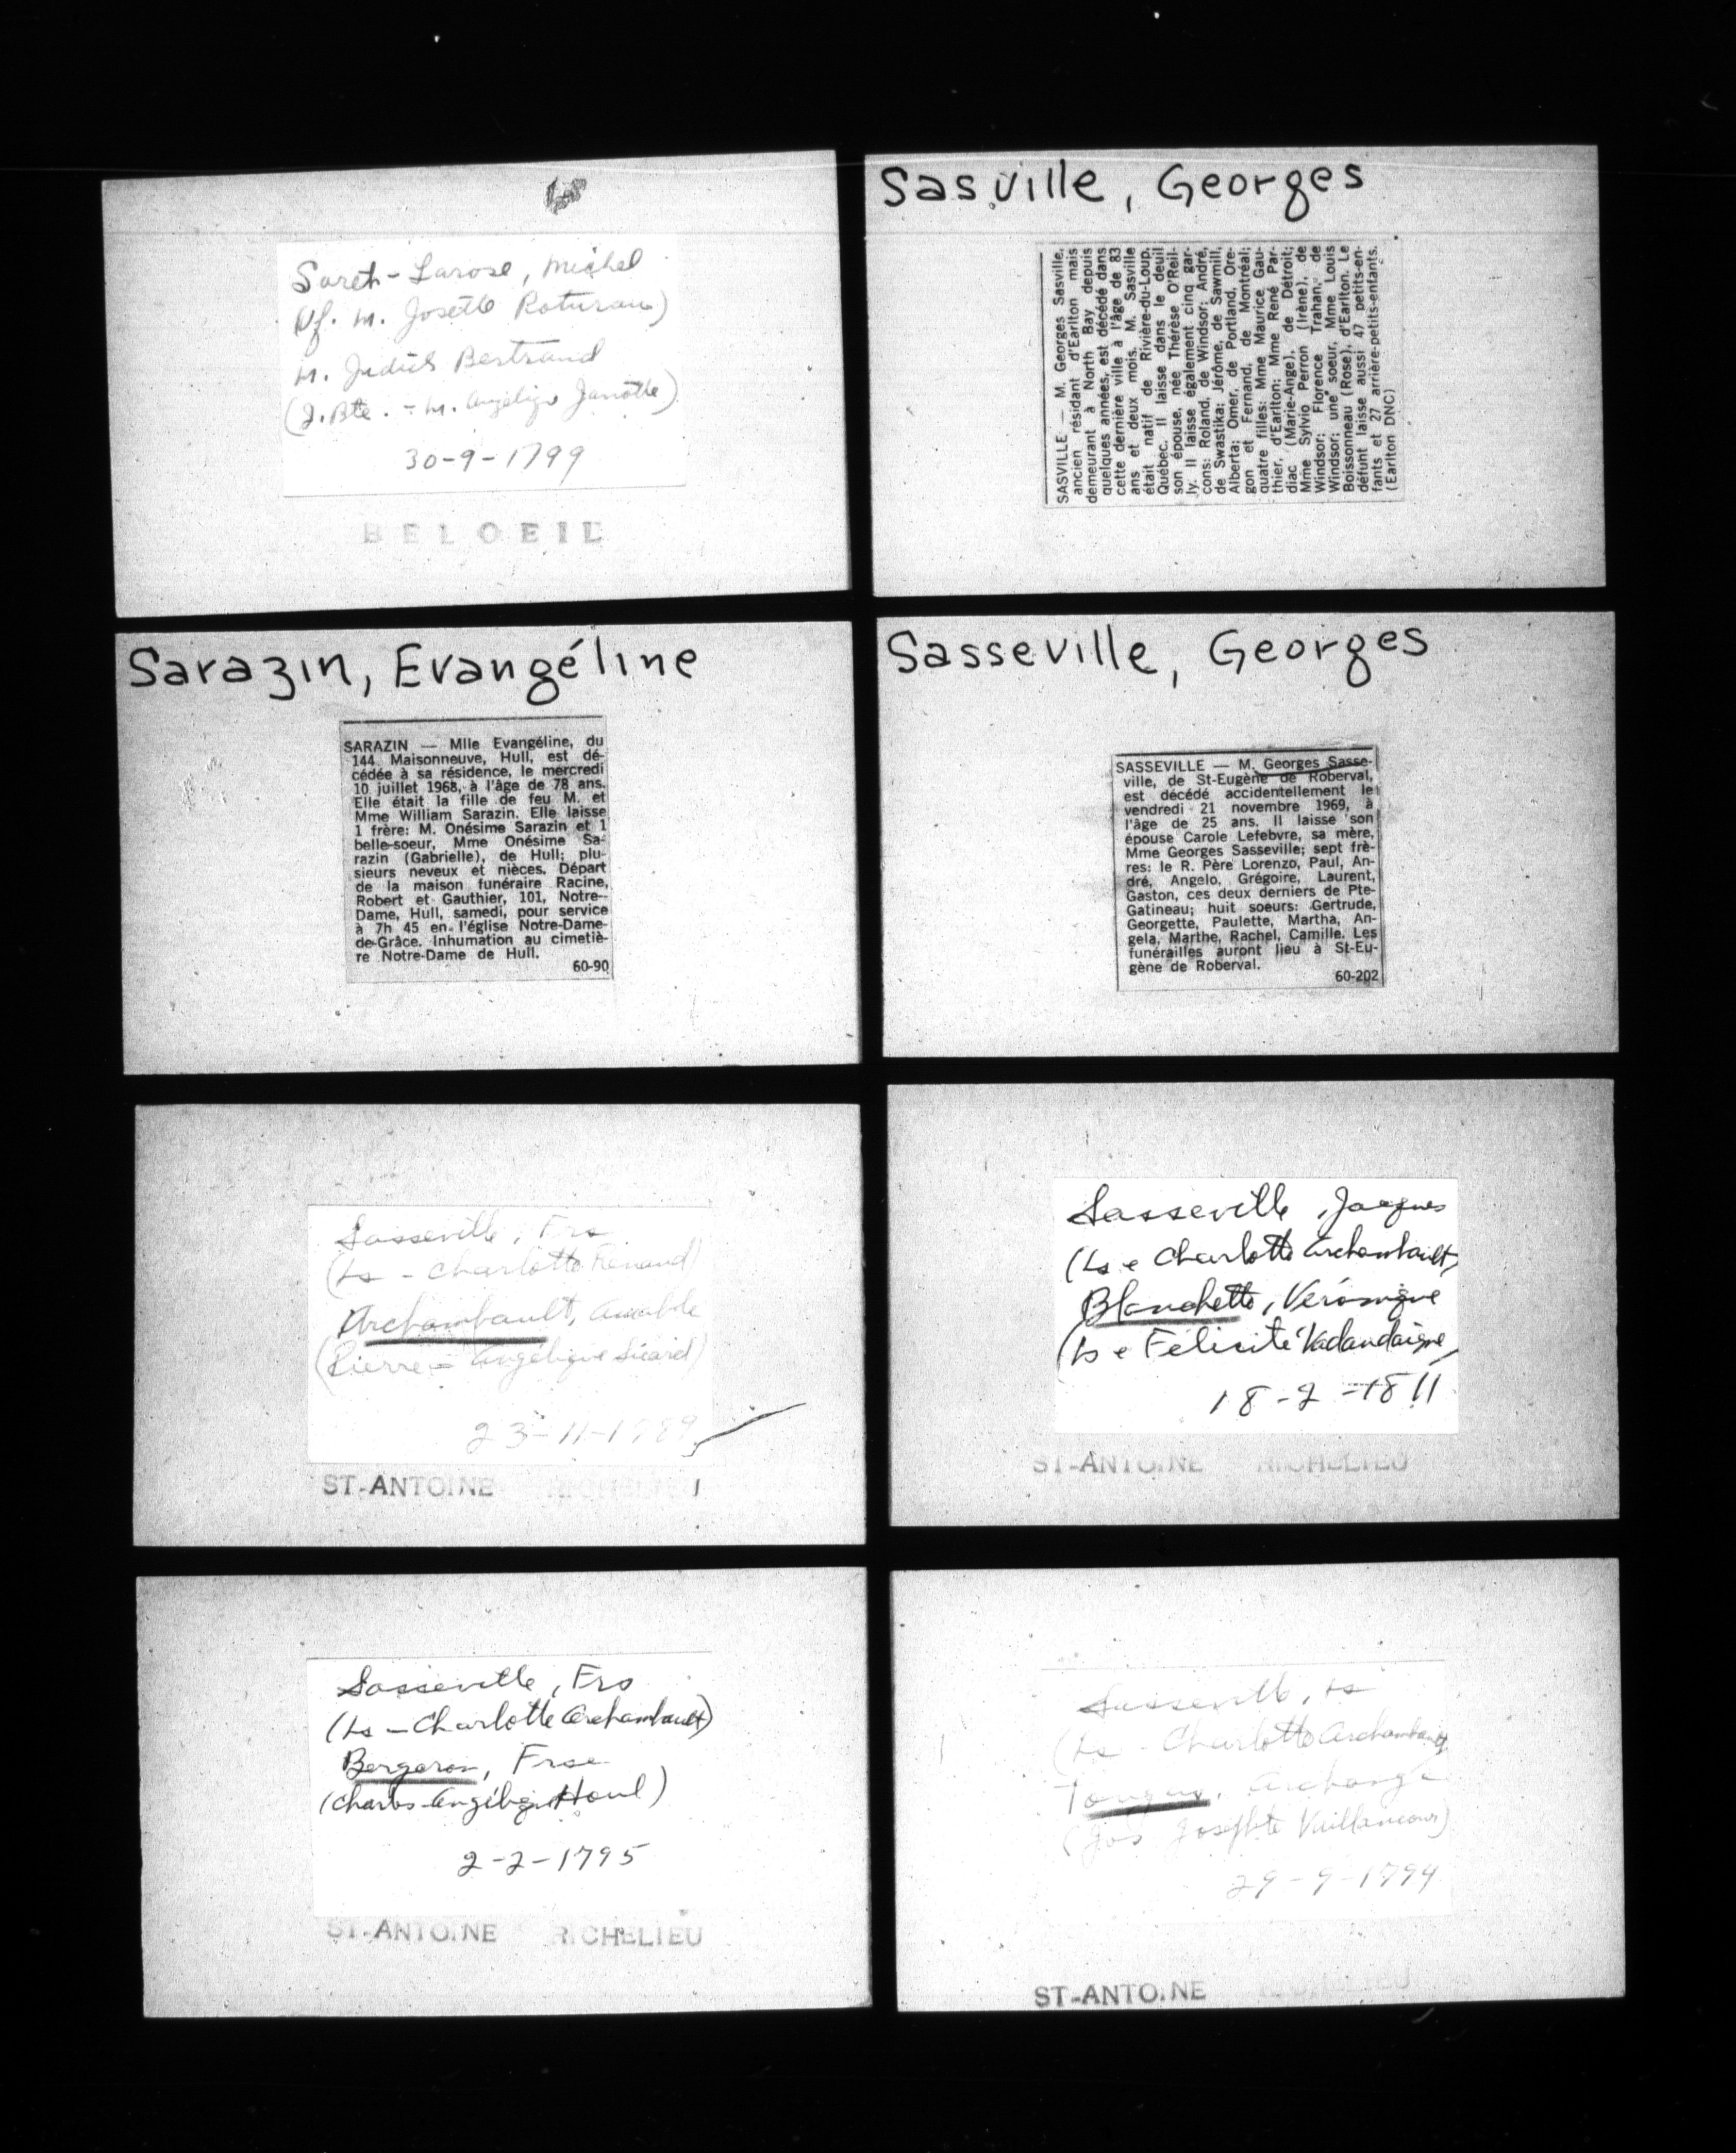 Michel
(Vf. m. Josette
m. Judith Bertrand
(J. Bte. - M. Angélique
30-9-1799
BELOEIL
Sarazin, Evangéline
SARAZIN — Mlle Evangéline, du
144 Maisonneuve, Hull, est dé-
cédée à sa résidence, le mercredi
10 juillet 1968, à l'âge de 78 ans.
Elle était la fille de feu M. et
Mme William Sarazin. Elle laisse
1 frère: M. Onésime Sarazin et 1
belle-soeur, Mme Onésime Sa-
razin (Gabrielle), de Hull; plu-
sieurs neveux et nièces. Départ
de la maison funéraire Racine,
Robert et Gauthier, 101, Notre-
Dame, Hull, samedi, pour service
à 7h 45 en l'église Notre-Dame-
de-Grâce. Inhumation au cimetiè-
re Notre-Dame de Hull.
60-90
Sasseville, Frs
(Ls - Charlotte Renaud)
Archambault, Amable
(Pierre - Angélique Sicard)
23-11-1789
ST-ANTOINE RICHELIEU
Sasseville, Frs
(Ls - Charlotte Archambault)
Bergeron, Frse
(Charles - Angélique Houl)
2-2-1795
ST-ANTOINE RICHELIEU
Sasville, Georges
SASVILLE — M. Georges Sasville,
ancien résidant d'Earlton mais
demeurant à North Bay depuis
quelques années, est décédé dans
cette dernière ville à l'âge de 83
ans et deux mois. M. Sasville
était natif de Rivière-du-Loup,
Québec. Il laisse dans le deuil
son épouse, née Thérèse O'Reil-
ly. Il laisse également cinq gar-
cons: Roland, de Windsor; André,
de Swastika; Jérôme, de Sawmill,
Alberta; Omer, de Portland, Ore-
gon et Fernand, de Montréal;
quatre filles: Mme Maurice Gau-
thier, d'Earlton; Mme René Par-
diac (Marie-Ange), de Détroit;
Mme Sylvio Perron (Irène), de
Windsor; Florence Trahan, de
Windsor; une soeur, Mme Louis
Boissonneau (Rose), d'Earlton. Le
défunt laisse aussi 47 petits-en-
fants et 27 arrière-petits-enfants.
(Earlton DNC)
Sasseville, Georges
SASSEVILLE — M. Georges Sasse-
ville, de St-Eugène de Roberval,
est décédé accidentellement le
vendredi 21 novembre 1969, à
l'âge de 25 ans. Il laisse son
épouse Carole Lefebvre, sa mère,
Mme Georges Sasseville; sept frè-
res: le R. Père Lorenzo, Paul, An-
dré, Angelo, Grégoire, Laurent,
Gaston, ces deux derniers de Pte-
Gatineau; huit soeurs: Gertrude,
Georgette, Paulette, Martha, An-
gela, Marthe, Rachel, Camille. Les
funérailles auront lieu à St-Eu-
gène de Roberval.
60-202
Sasseville, Jacques
(Ls e Charlotte Archambault)
Blanchette, Véronique
(Ls e Félicité Vadandaigne)
18-2-1811
ST-ANTOINE RICHELIEU
Sasseville, Ls
(Ls - Charlotte Archambault
Archange
(Jos Josephte Vaillancour)
29-9-1794
ST-ANTOINE RICHELIEU